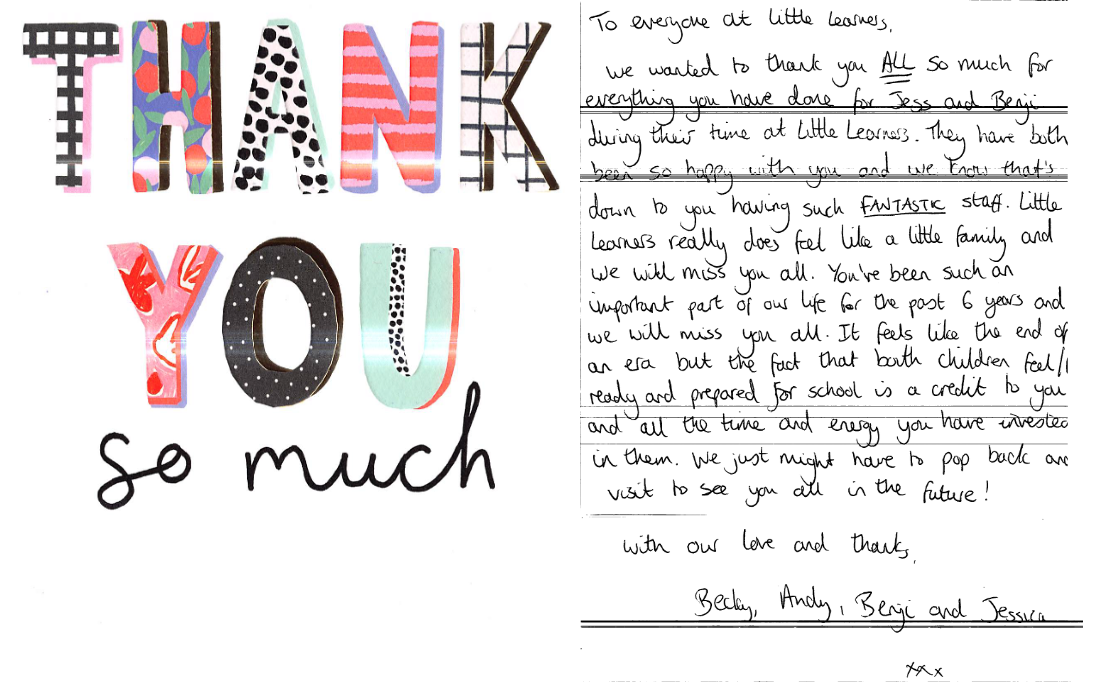 THANK
YOU
so much
To everyone at Little Learners,
we wanted to thank you ALL so much for
everything you have done for Jess and Benji
during their time at Little Learners. They have both
been so happy with you and we know that's
down to you having such FANTASTIC staff. Little
Learners really does feel like a little family and
we will miss you all. You've been such an
important part of our life for the past 6 years and
we will miss you all. It feels like the end of
an era but the fact that both children feel
ready and prepared for school is a credit to you
and all the time and energy you have invested
in them. We just might have to pop back and
visit to see you all in the future!
with our love and thanks,
Becky, Andy, Benji and Jessica
xxx